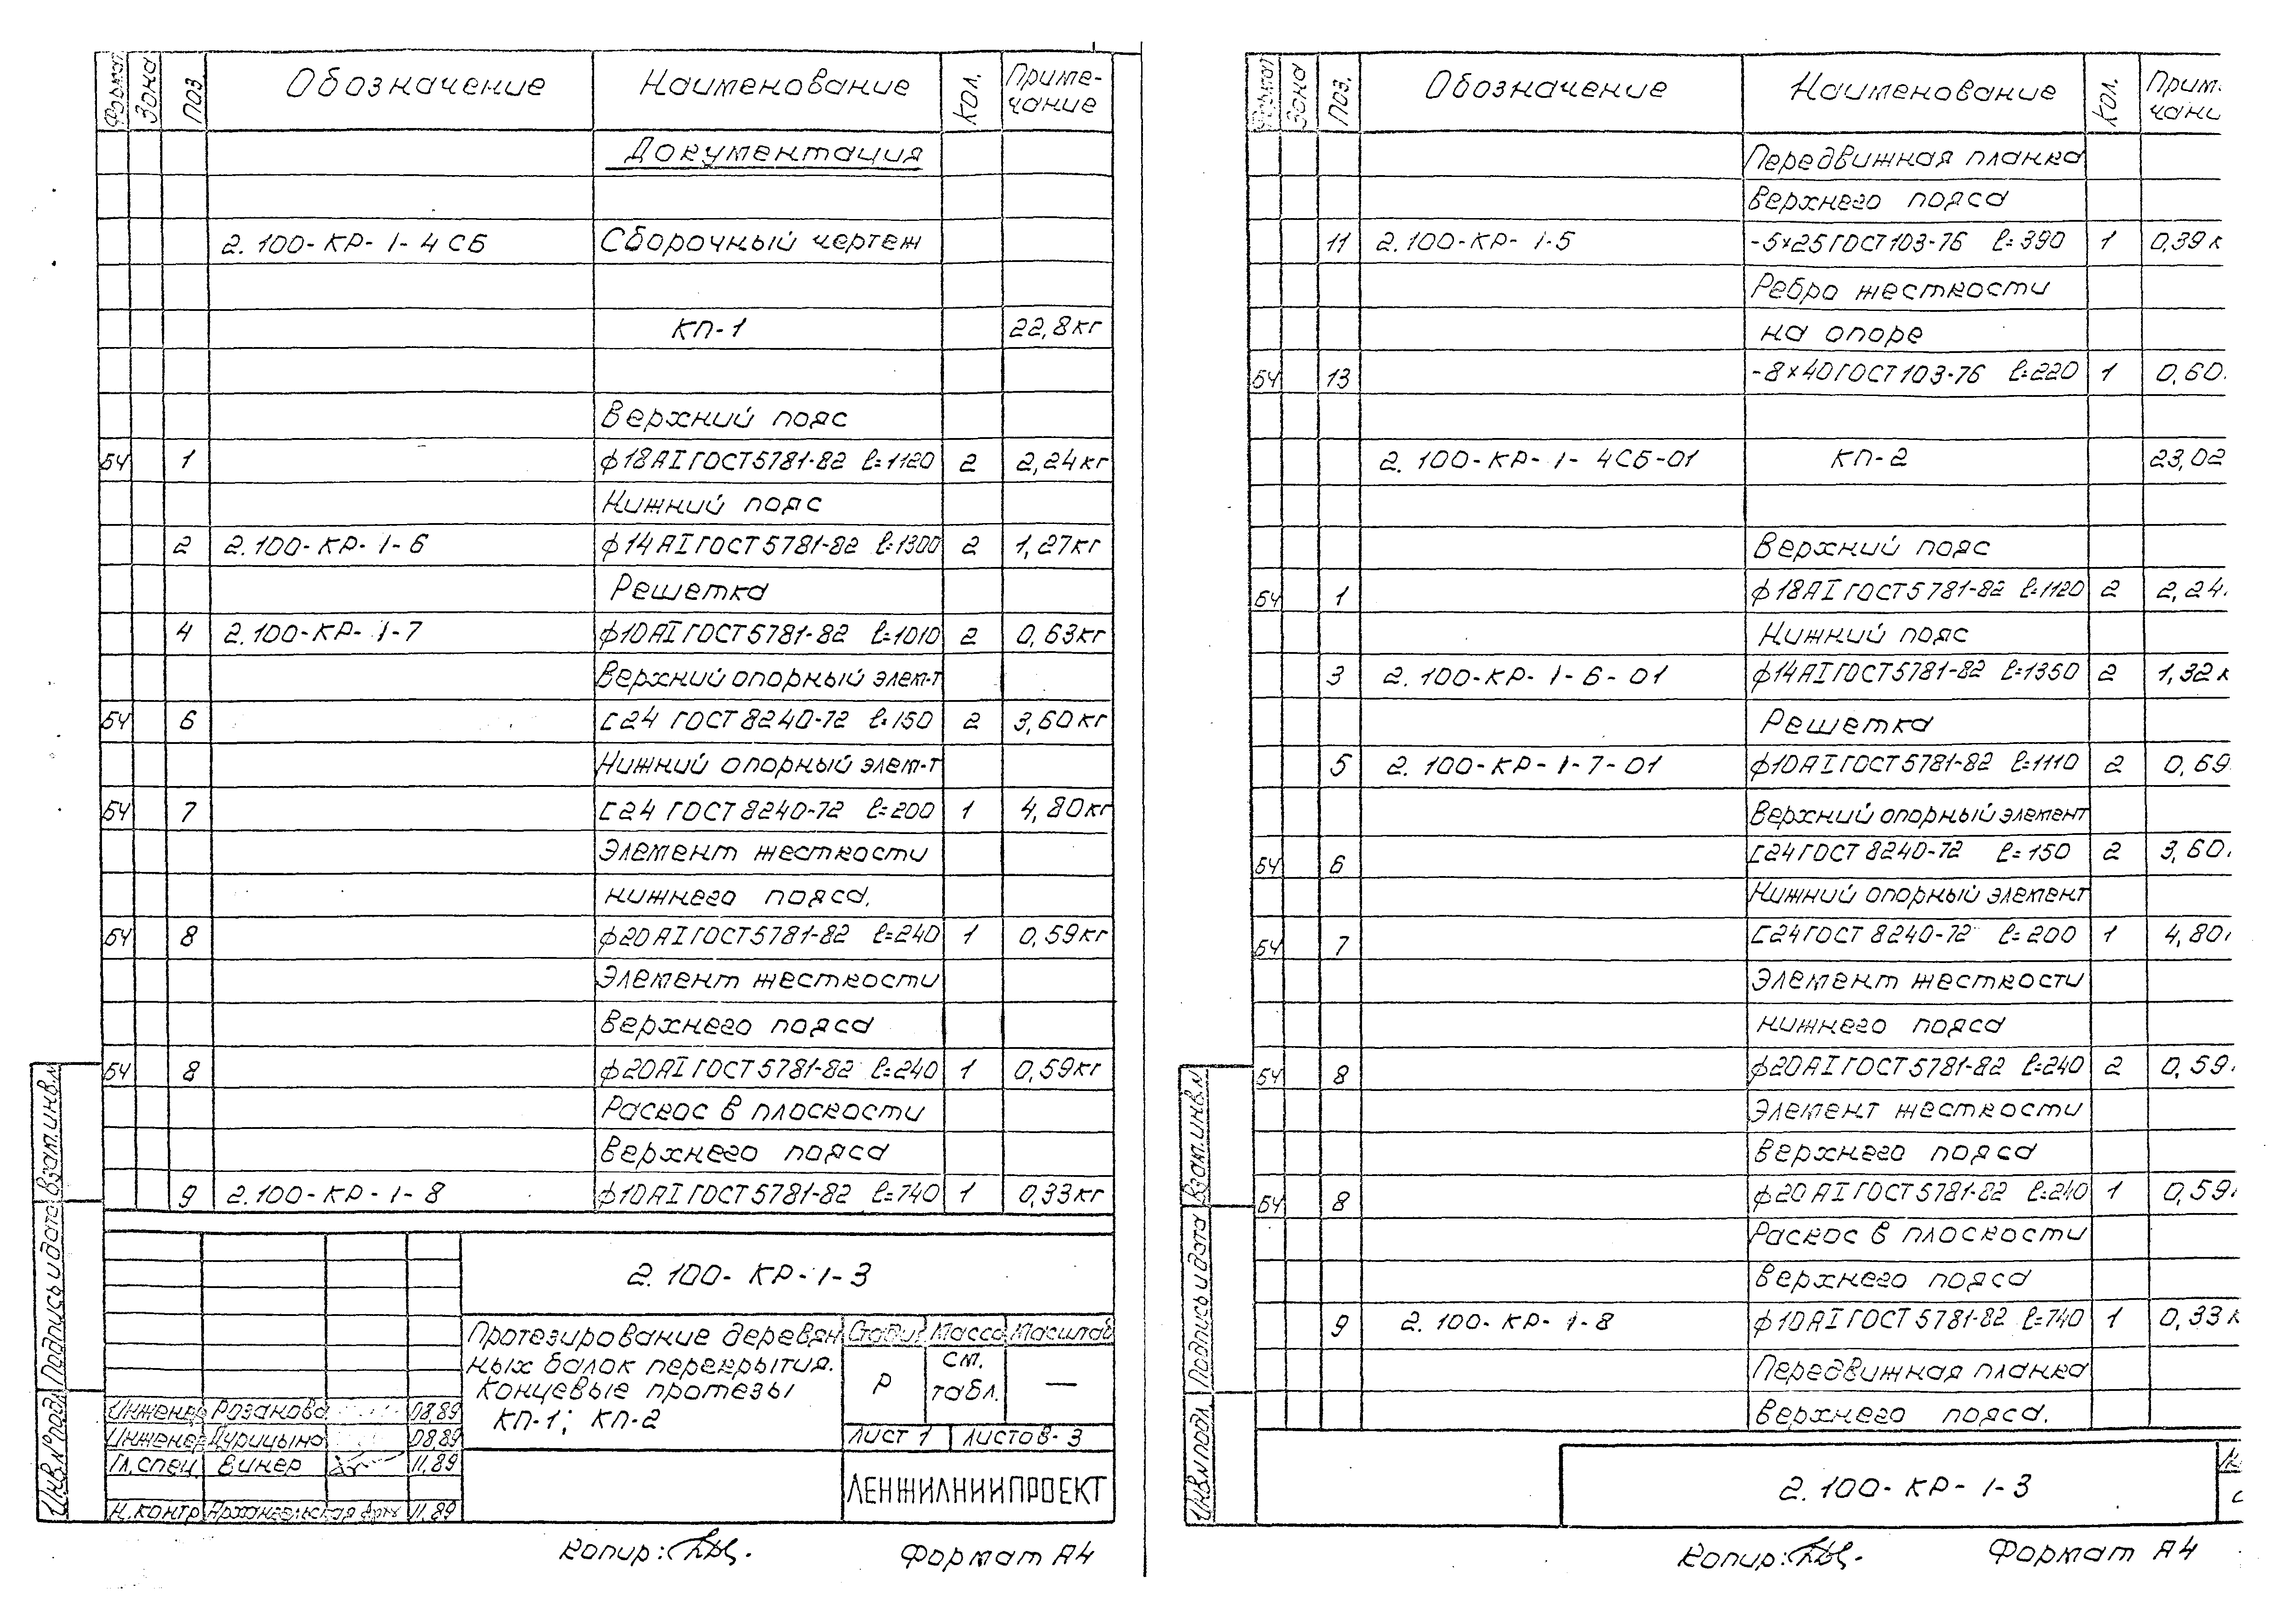 Формат Зона Поз. Обозначение Наименование Кол. Примечание
Документация
2.100-КР-1-4СБ Сборочный чертеж
КП-1 22,8кг
Верхний пояс
БЧ 1 ф18АI ГОСТ 5781-82 ℓ=1120 2 2,24кг
Нижний пояс
2 2.100-КР-1-6 ф14АI ГОСТ 5781-82 ℓ=1300 2 1,27кг
Решетка
4 2.100-КР-1-7 ф10АI ГОСТ 5781-82 ℓ=1010 2 0,63кг
Верхний опорный элем-т
БЧ 6 [24 ГОСТ 8240-72 ℓ=150 2 3,60кг
Нижний опорный элем-т
БЧ 7 [24 ГОСТ 8240-72 ℓ=200 1 4,80кг
Элемент жесткости
нижнего пояса.
БЧ 8 ф20АI ГОСТ 5781-82 ℓ=240 1 0,59кг
Элемент жесткости
верхнего пояса
БЧ 8 ф20АI ГОСТ 5781-82 ℓ=240 1 0,59кг
Раскос в плоскости
верхнего пояса
9 2.100-КР-1-8 ф10АI ГОСТ 5781-82 ℓ=740 1 0,33кг
2.100-КР-1-3
Протезирование деревян
ных балок перекрытия.
Концевые протезы
КП-1; КП-2
Стадия Масса Масштаб
Р см. табл. —
Лист 1 Листов-3
ЛЕНЖИЛНИИПРОЕКТ
Инженер Розанова 08.89
Инженер Дурицына 08.89
Гл.спец. Винер 11.89
Н.контр Архангельская 11.89
Взам.инв.№
Подпись и дата
Инв.№ подл.
Копир:
Формат А4
Формат Зона Поз. Обозначение Наименование Кол. Прим. чани
Передвижная планка
верхнего пояса
11 2.100-КР-1-5 -5×25 ГОСТ 103-76 ℓ=390 1 0,39 к
Ребро жесткости
на опоре
БЧ 13 -8×40 ГОСТ 103-76 ℓ=220 1 0,60
2.100-КР-1-4СБ-01 КП-2 23,02
Верхний пояс
БЧ 1 ф18АI ГОСТ 5781-82 ℓ=1120 2 2,24
Нижний пояс
3 2.100-КР-1-6-01 ф14АI ГОСТ 5781-82 ℓ=1350 2 1,32 к
Решетка
5 2.100-КР-1-7-01 ф10АI ГОСТ 5781-82 ℓ=1110 2 0,69
Верхний опорный элемент
БЧ 6 [24 ГОСТ 8240-72 ℓ=150 2 3,60
Нижний опорный элемент
БЧ 7 [24 ГОСТ 8240-72 ℓ=200 1 4,80
Элемент жесткости
нижнего пояса
БЧ 8 ф20АI ГОСТ 5781-82 ℓ=240 2 0,59
Элемент жесткости
верхнего пояса
БЧ 8 ф20АI ГОСТ 5781-82 ℓ=240 1 0,59
Раскос в плоскости
верхнего пояса
9 2.100-КР-1-8 ф10АI ГОСТ 5781-82 ℓ=740 1 0,33 к
Передвижная планка
верхнего пояса.
2.100-КР-1-3
Взам.инв.№
Подпись и дата
Инв.№ подл.
Копир:
Формат А4